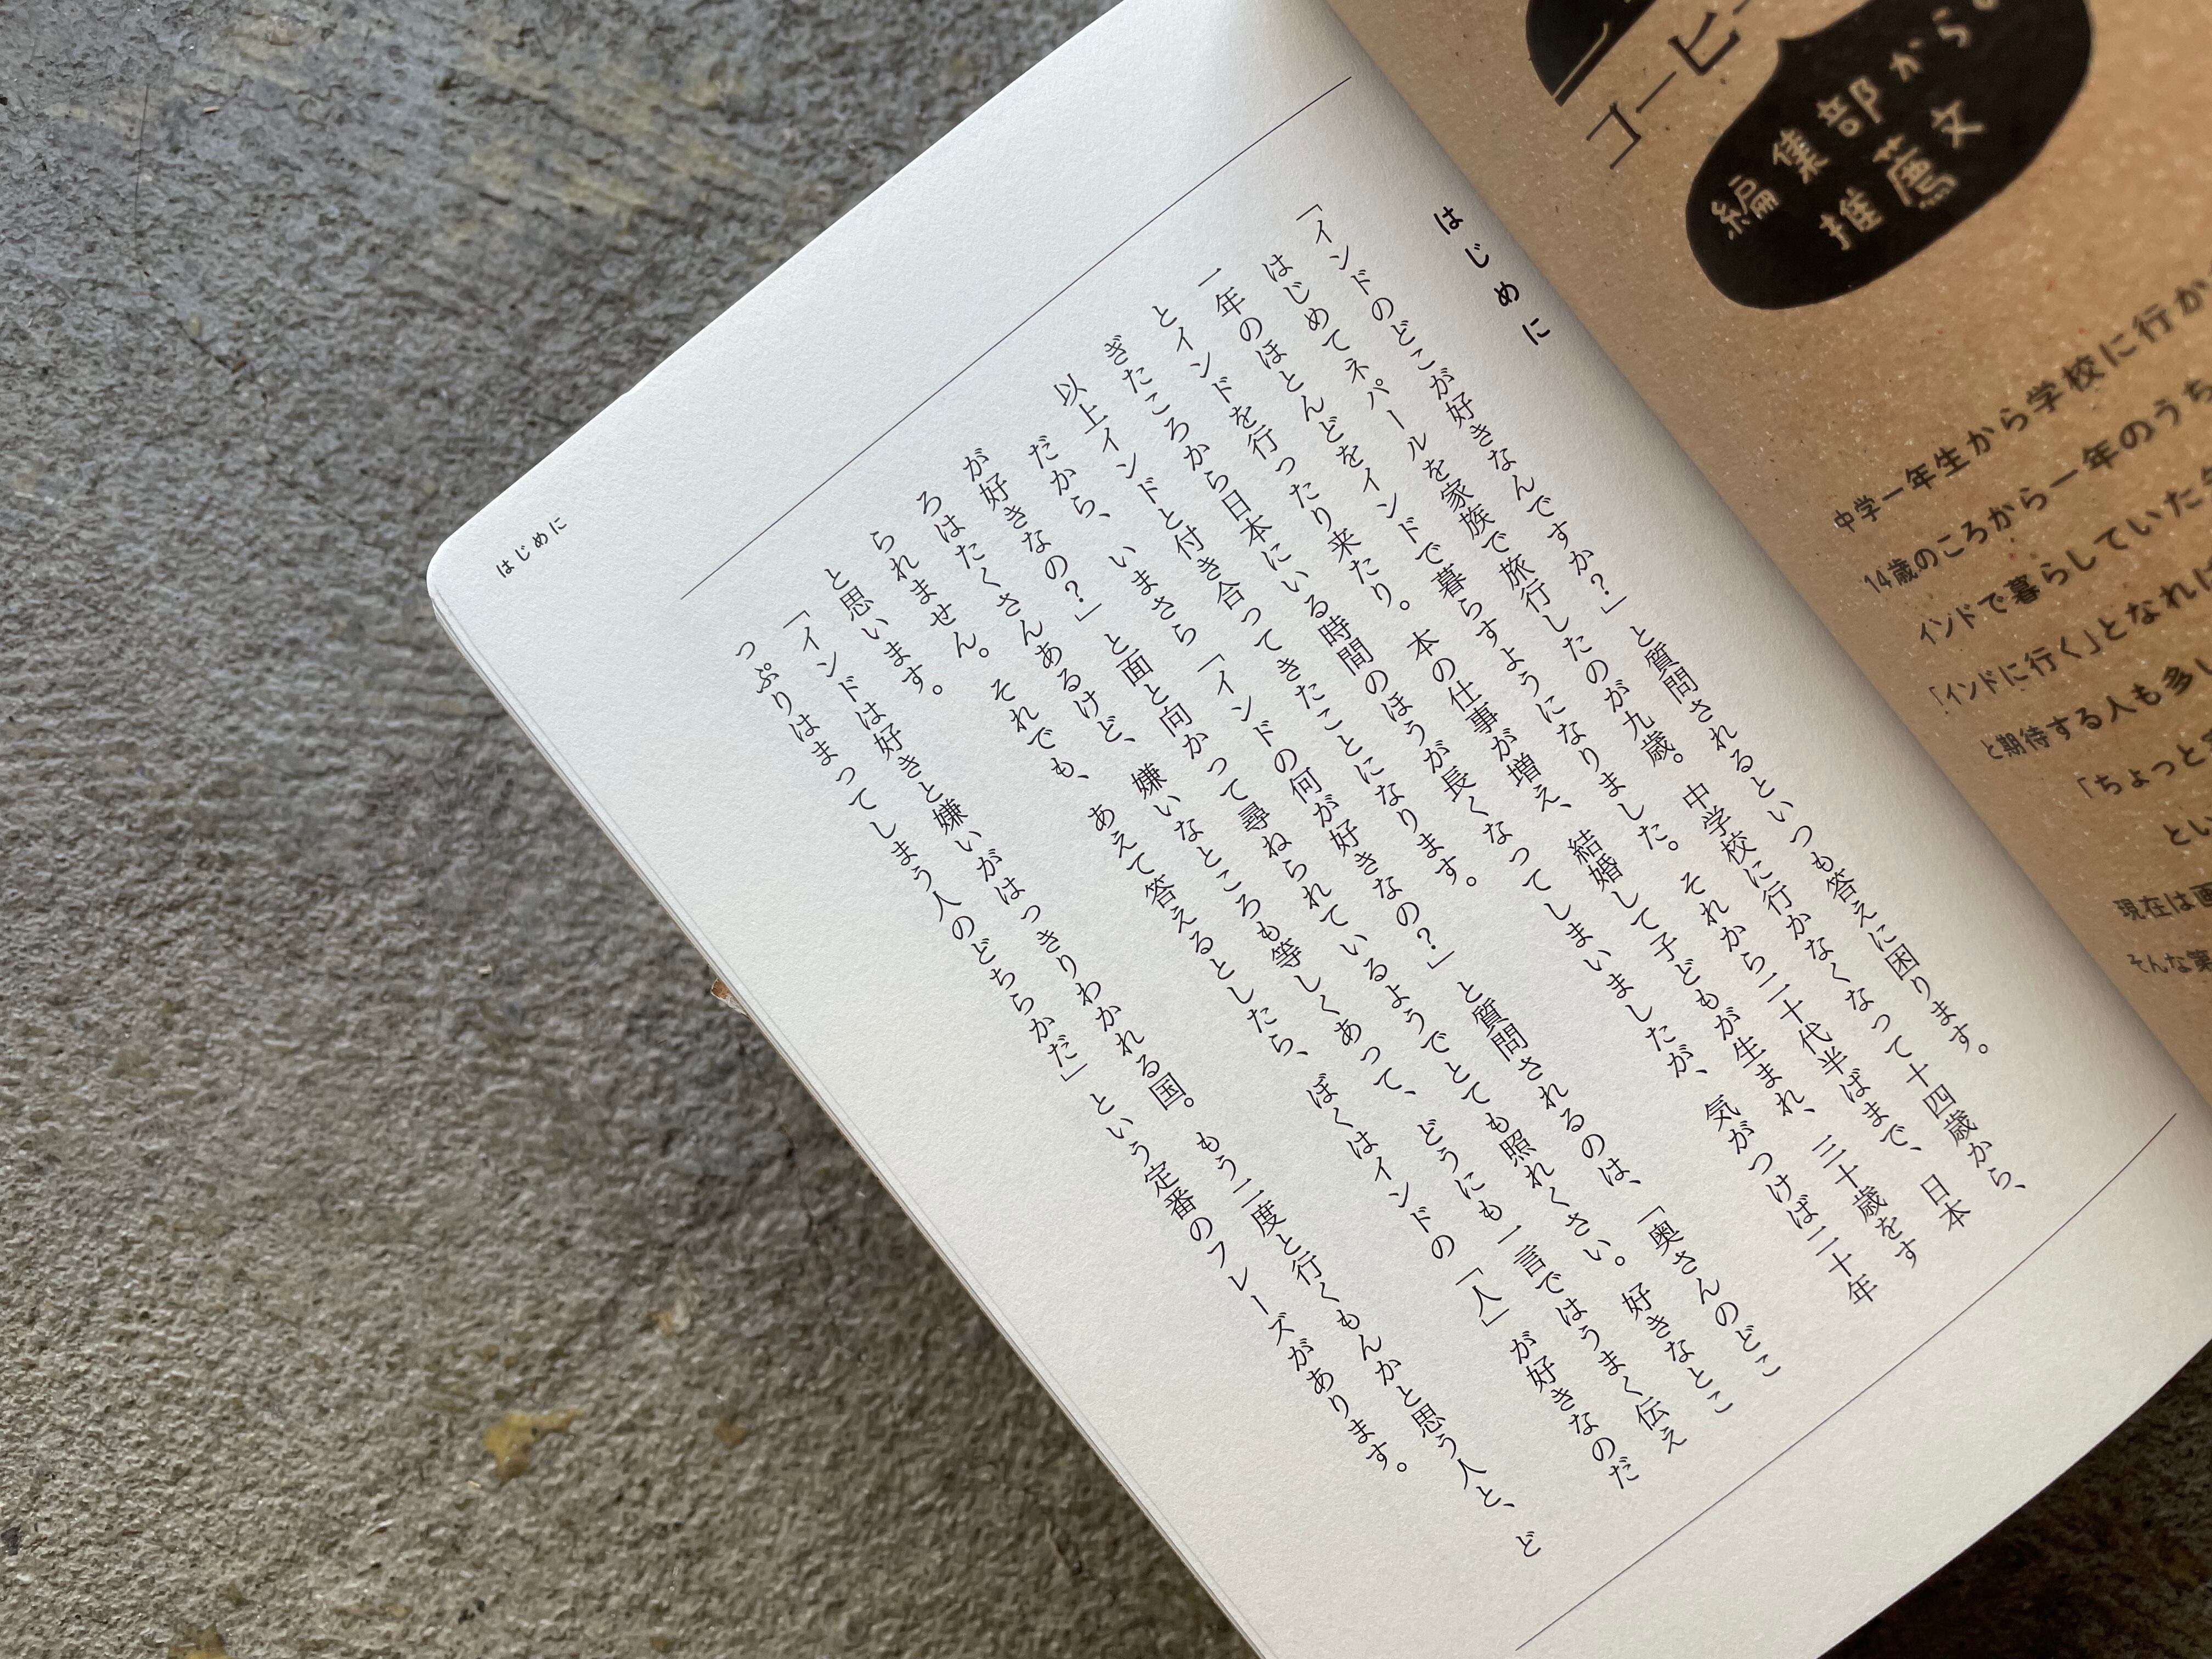 コーヒー
編集部からの
推薦文
中学一年生から学校に行か
14歳のころから一年のうち
インドで暮らしていた
「インドに行く」となれば
と期待する人も多い
「ちょっと
とい
現在は画
そんな第
はじめに
「インドのどこが好きなんですか？」と質問されるといつも答えに困ります。
はじめてネパールを家族で旅行したのが九歳。中学校に行かなくなって十四歳から、
一年のほとんどをインドで暮らすようになりました。それから二十代半ばまで、日本
とインドを行ったり来たり。本の仕事が増え、結婚して子どもが生まれ、三十歳をす
ぎたころから日本にいる時間のほうが長くなってしまいましたが、気がつけば二十年
以上インドと付き合ってきたことになります。
だから、いまさら「インドの何が好きなの？」と質問されるのは、「奥さんのどこ
が好きなの？」と面と向かって尋ねられているようでとても照れくさい。好きなとこ
ろはたくさんあるけど、嫌いなところも等しくあって、どうにも一言ではうまく伝え
られません。それでも、あえて答えるとしたら、ぼくはインドの「人」が好きなのだ
と思います。
「インドは好きと嫌いがはっきりわかれる国。もう二度と行くもんかと思う人と、ど
っぷりはまってしまう人のどちらかだ」という定番のフレーズがあります。
はじめに